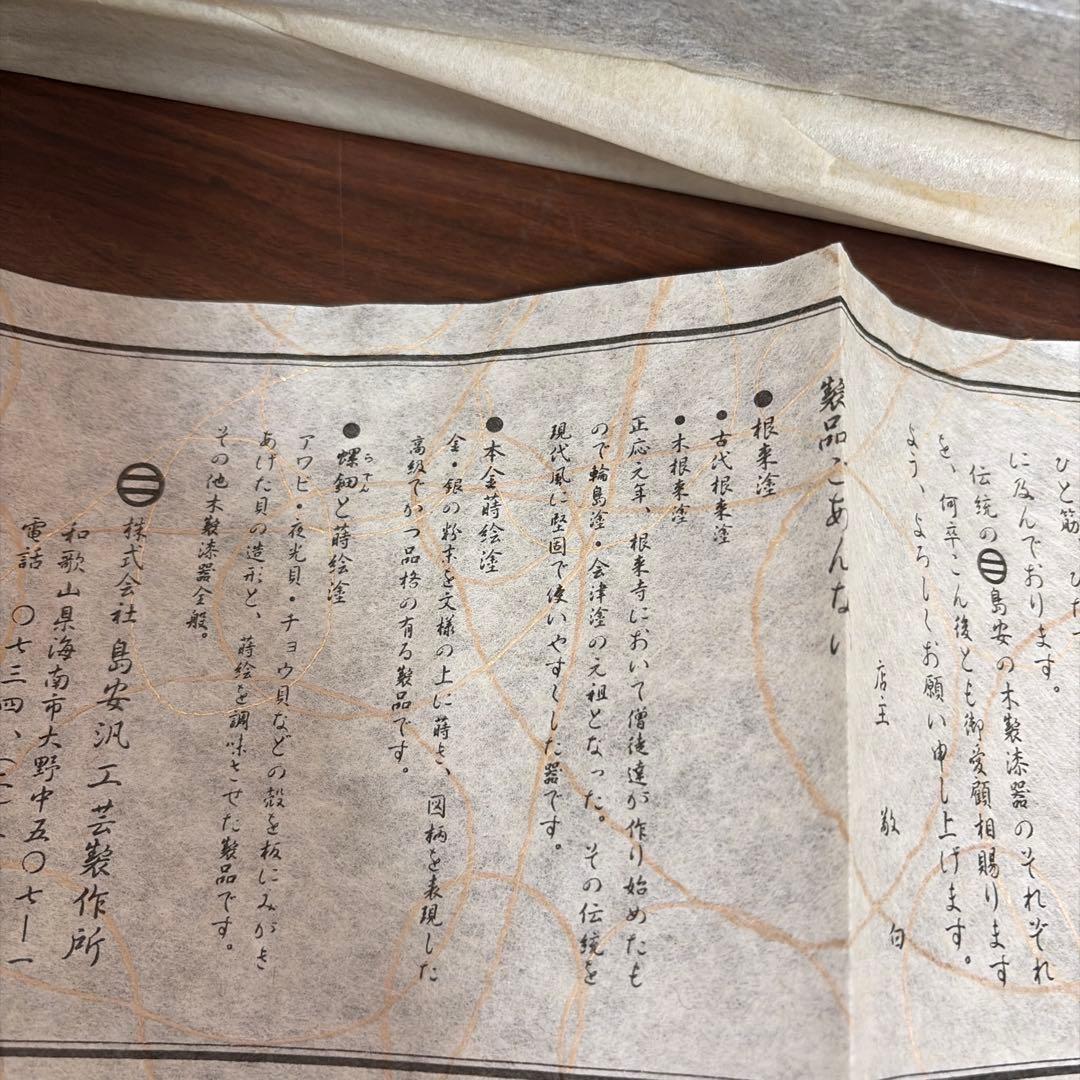 ひと筋 ひたす
に及んでおります。
伝統の 島安の木製漆器のそれぞれ
を、何卒こん後とも御愛顧相賜ります
よう、よろしくお願い申し上げます。
店主 敬白
製品ごあんない
●根来塗
●古代根来塗
●木根来塗
正応元年、根来寺において僧徒達が作り始めたも
ので輪島塗・会津塗の元祖となった。その伝統を
現代風に堅固で使いやすくした器です。
●本金蒔絵塗
金・銀の粉末を文様の上に蒔き、図柄を表現した
高級でかつ品格の有る製品です。
●螺鈿と蒔絵塗
らでん
アワビ・夜光貝・チョウ貝などの殻を板にみがき
あげた貝の造形と、蒔絵を調味させた製品です。
その他木製漆器全般。
株式会社 島安汎工芸製作所
和歌山県海南市大野中五〇七ー一
電話 〇七三四、